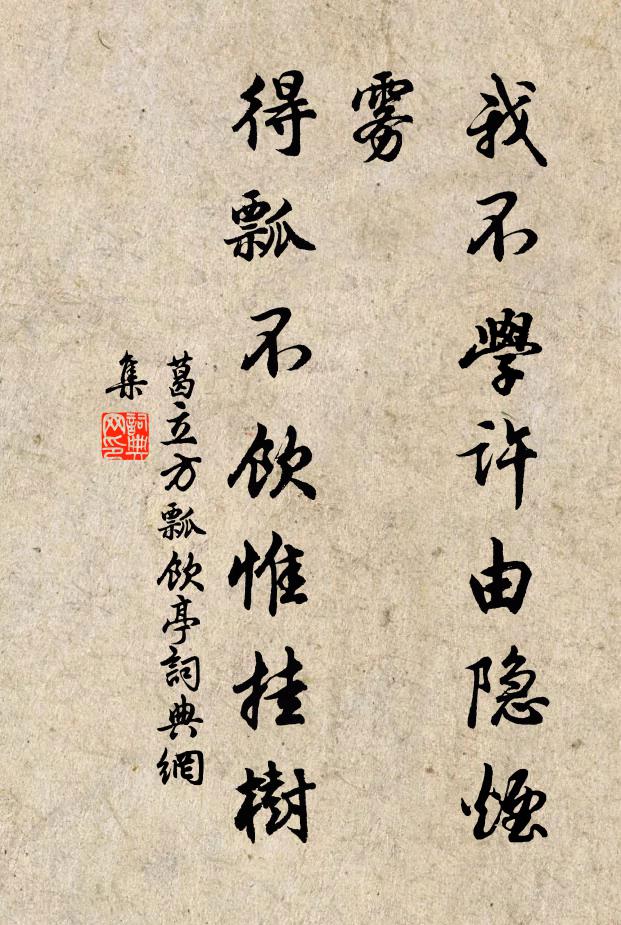 我不學許由隐煙
雾
得瓢不飲惟挂樹
葛立方瓢飲亭詞典網
集
詞典
网印